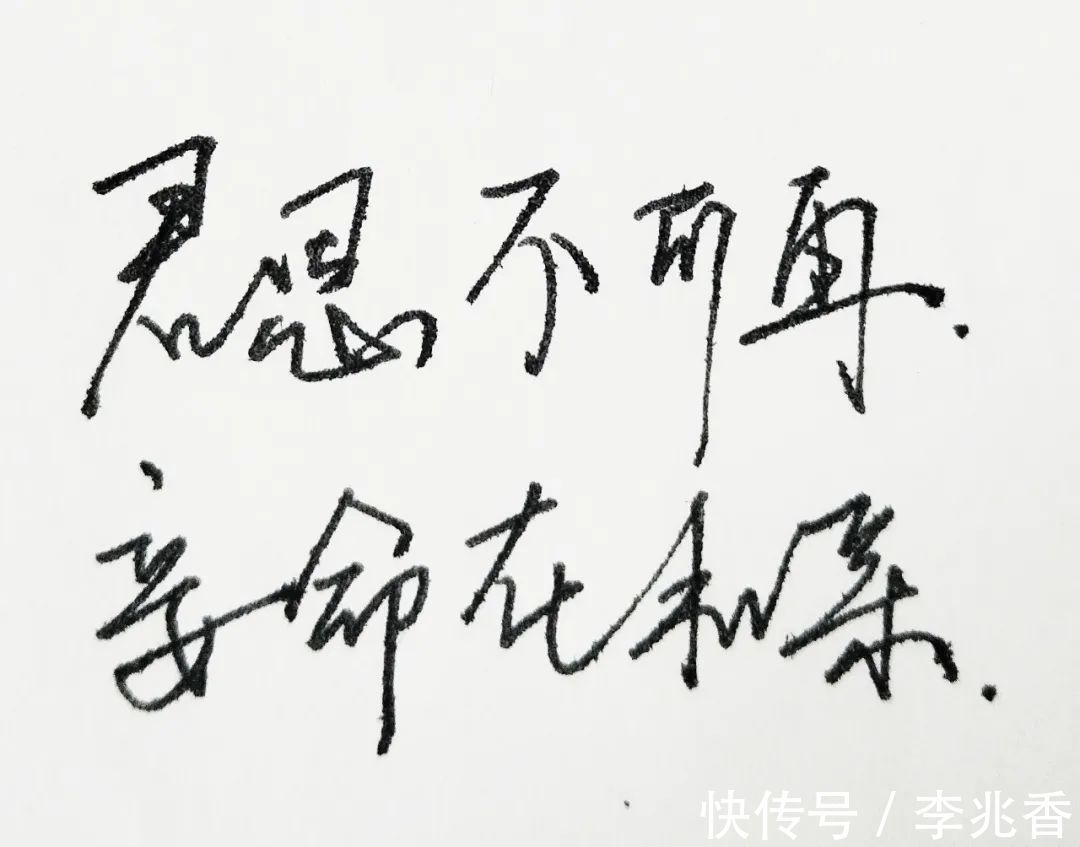 君恩不可再.
妾命在和亲.
快传号/李兆香